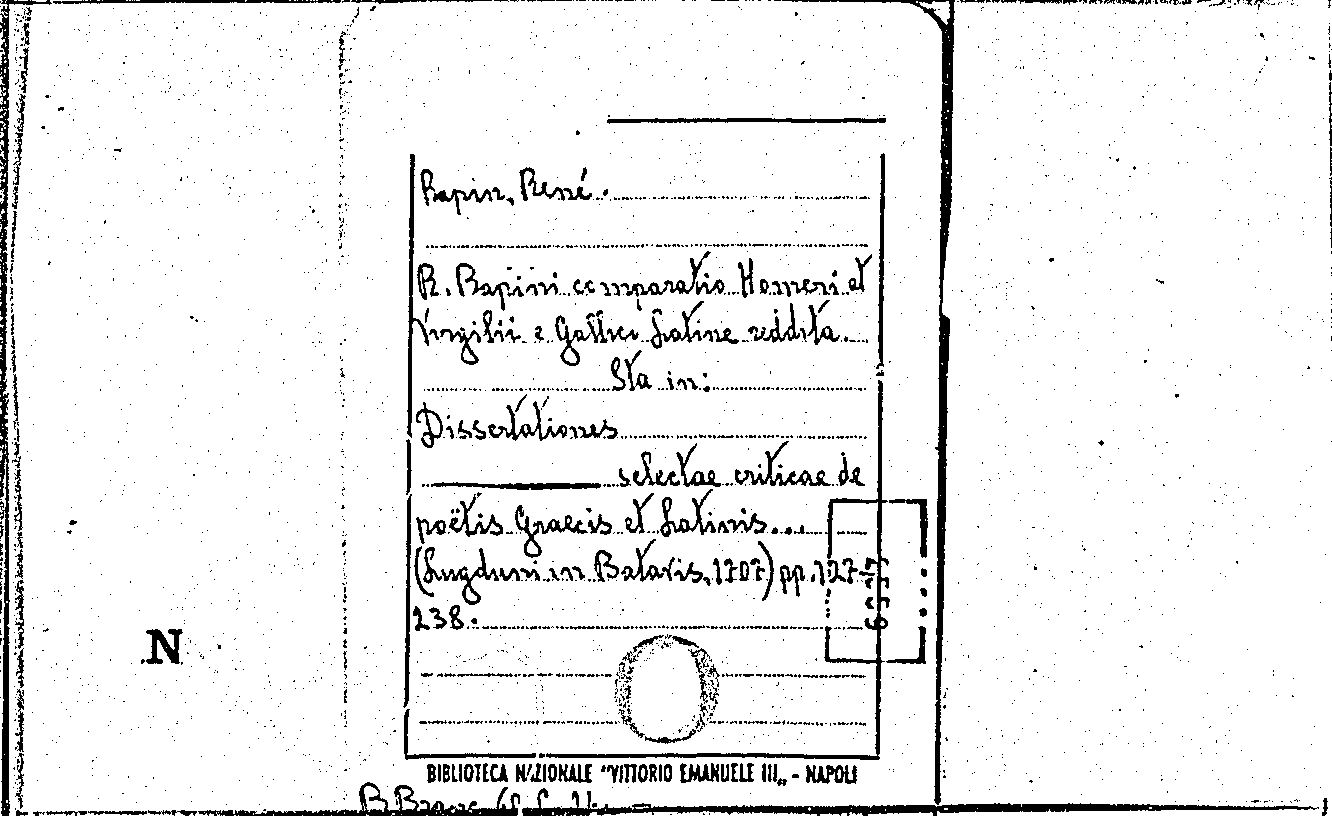 Rapin, René.
R. Rapini comparatio Homeri et
Virgilii e Gallico Latine reddita.
Sta in:
Dissertationes
selectae criticae de
poëtis Graecis et Latinis...
(Lugduni in Batavis, 1707) pp. 127-
238.
N
BIBLIOTECA NAZIONALE "VITTORIO EMANUELE III„ - NAPOLI